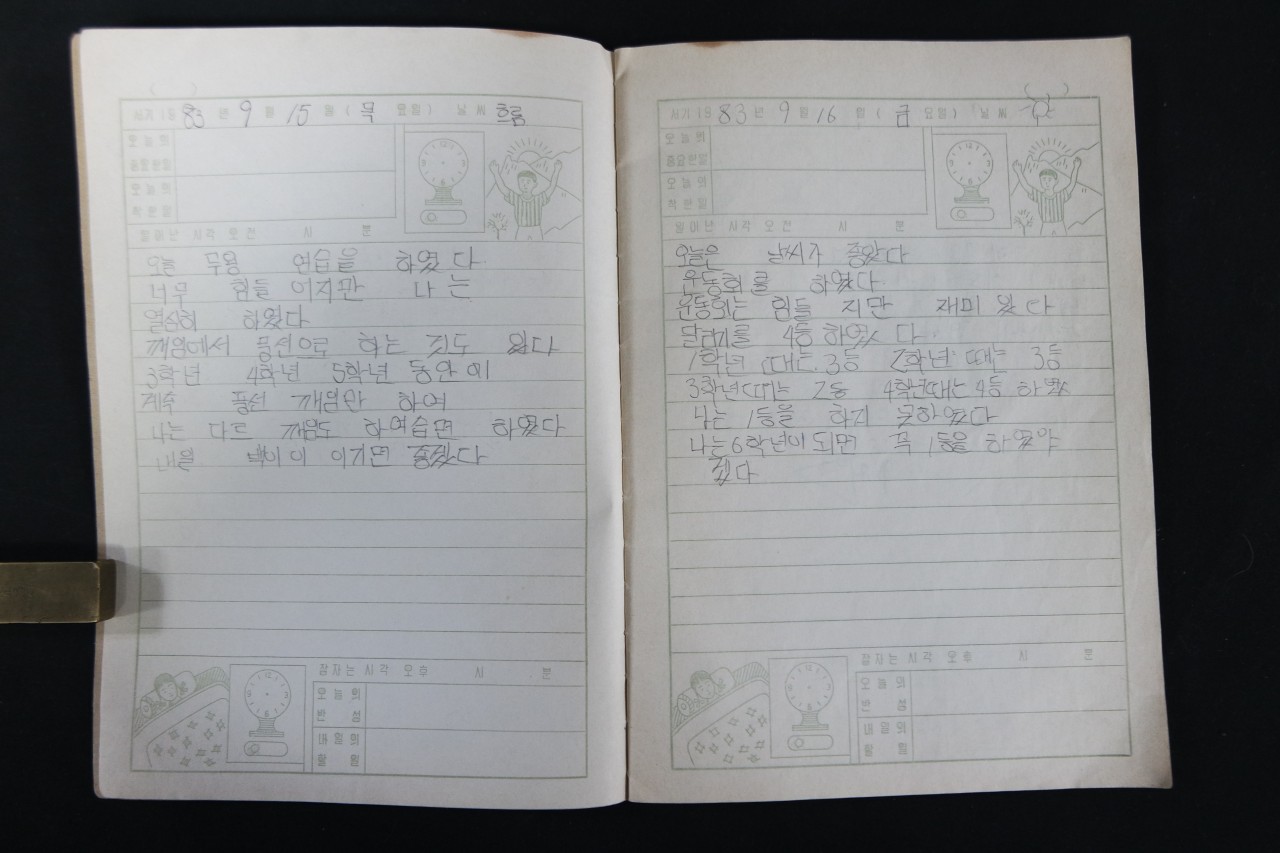 서기 19 83 년 9 월 15 일 ( 목 요일 ) 날 씨 흐림
오 늘 의
중요한일
오 늘 의
착 한 일
일어난 시각 오전 시 분
오늘 무용 연습을 하였다
너무 힘들 어지만 나는
열심히 하였다
께임에서 풍선으로 하는 것도 있다
3학년 4학년 5학년 동안이
계속 풍선 께임만 하여
나는 다르 께임도 하여습면 하였다
내일 백이 이 이기면 좋겠다
잠자는 시각 오후 시 분
오 늘 의
반 성
내 일 의
할 일
서기 19 83 년 9 월 16 일 ( 금 요일 ) 날 씨
오 늘 의
중요한일
오 늘 의
착 한 일
일어난 시각 오전 시 분
오늘은 날씨가 좋았다
운동회를 하였다
운동회는 힘들 지만 재미 있다
달리기를 4등 하였다
1학년 때는 3등 2학년 때는 3등
3학년때는 2등 4학년때는 4등 하였
나는 1등을 하지 못하였다
나는 6학년이 되면 꼭 1등을 하였야
겠다
잠자는 시각 오후 시 분
오 늘 의
반 성
내 일 의
할 일